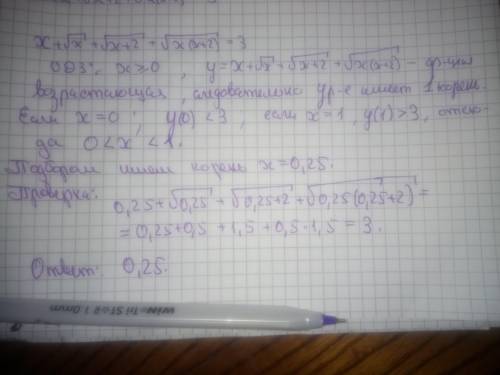 x+√x+√x+2+√x(x+2)=3
ОДЗ: x≥0, y=x+√x+√x+2+√x(x+2) - ф-ция
возрастающая, следовательно ур-е имеет 1 корень
Если x=0, y(0)<3, если x=1, y(1)>3, отсю-
да 0<x<1.
Подбором имеем корень x=0,25.
Проверка: 0,25+√0,25+√0,25+2+√0,25(0,25+2)=
=0,25+0,5+1,5+0,5·1,5=3.
Ответ: 0,25.
win Tri STAR 1.0mm